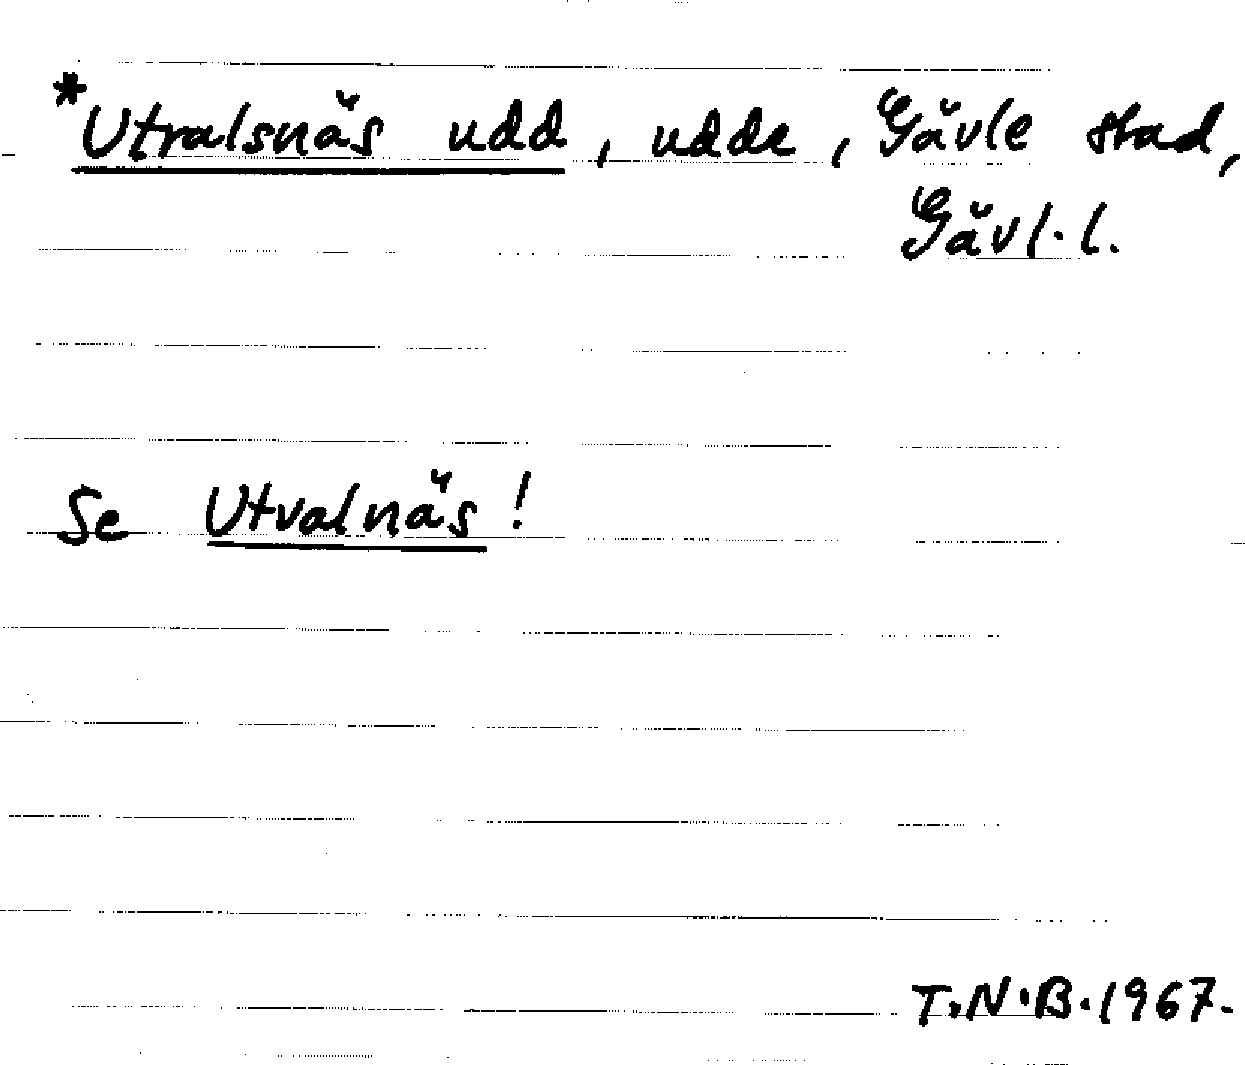 *Utralsnäs udd, udde, Gävle stad,
Gävl.l.
Se Utvalnäs!
T.N.B.1967.